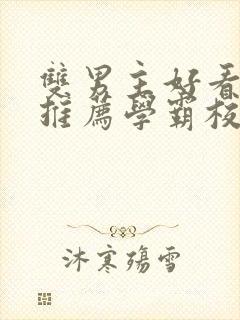 雙男主好看
推薦學霸校
沐寒殤雪